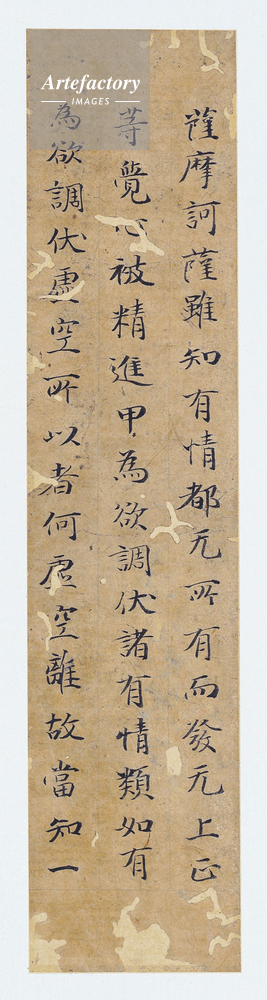 Artefactory
IMAGES
薩摩訶薩雖知有情都无所有而發无上正
等覺心被精進甲為欲調伏諸有情類如有
為欲調伏虛空所以者何虛空離故當知一